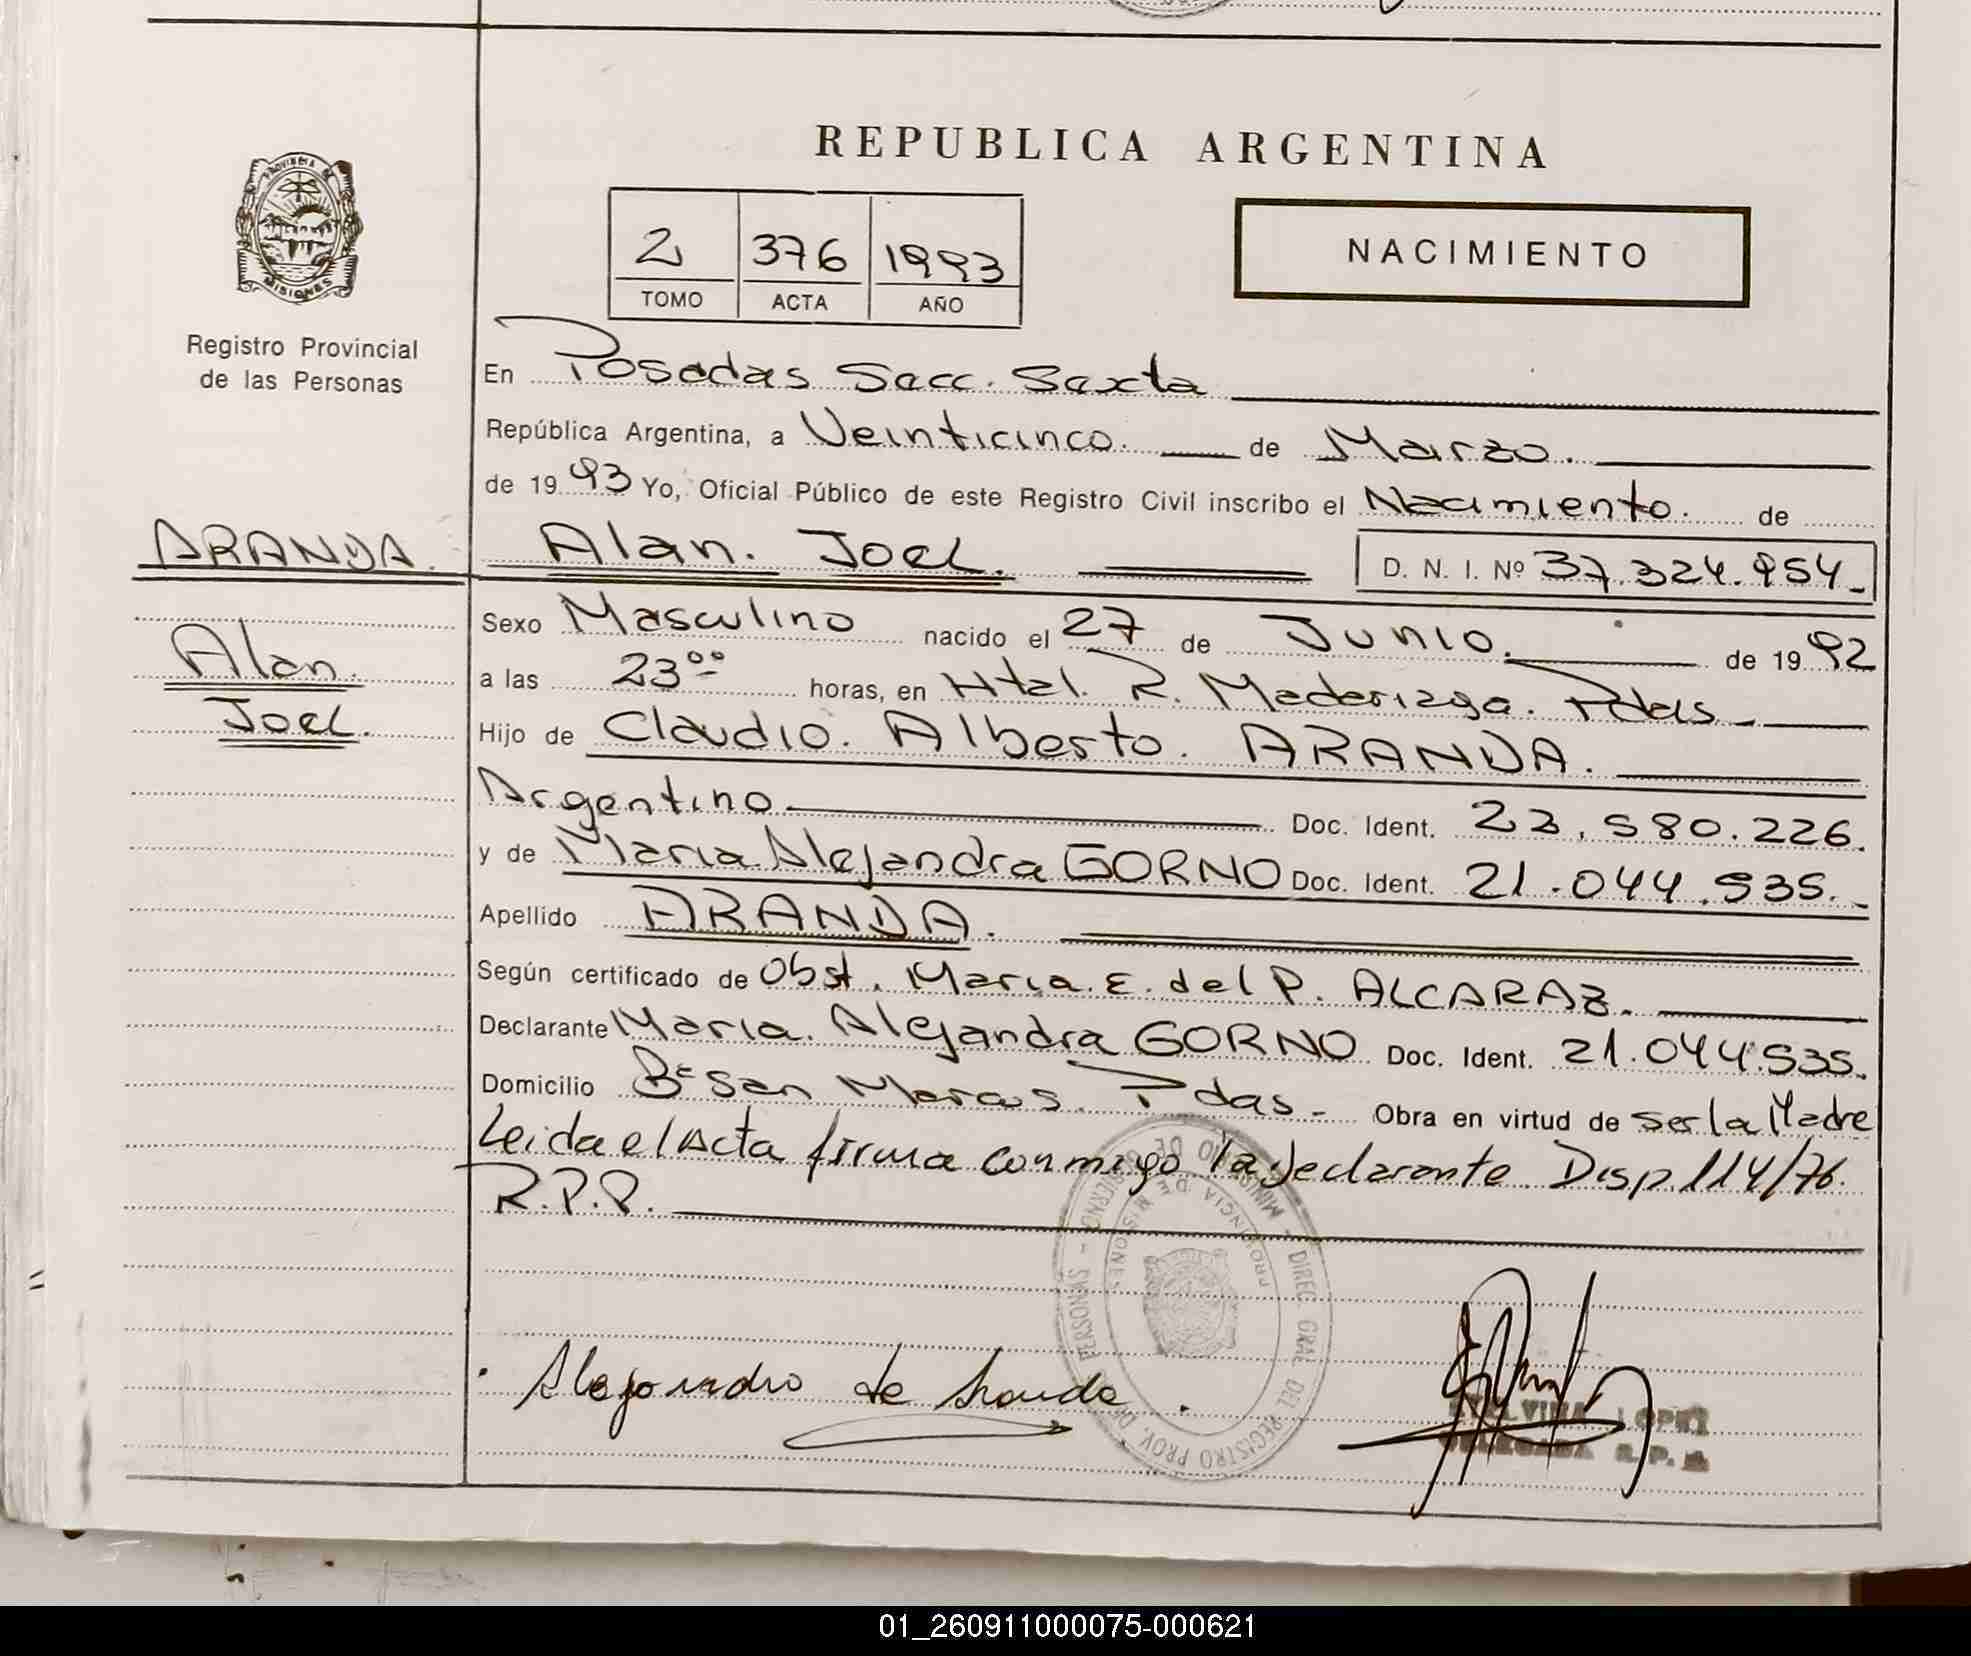 REPUBLICA ARGENTINA
PROVINCIA DE
MISIONES
Registro Provincial
de las Personas
2 376 1993
TOMO ACTA AÑO
NACIMIENTO
En Posadas Secc. Sexta
República Argentina, a Veinticinco. de Marzo.
de 19 93 Yo, Oficial Público de este Registro Civil inscribo el Nacimiento. de
ARANDA. Alan. Joel. D. N. I. Nº 37.324.954_
Sexo Masculino nacido el 27 de Junio. de 19 92
Alan. a las 23ºº horas, en Htal. R. Madariaga. Pdas_
Joel. Hijo de Claudio. Alberto. ARANDA.
Argentino. Doc. Ident. 23.580.226.
y de Maria Alejandra GORNO Doc. Ident. 21.044.535._
Apellido ARANDA.
Según certificado de Obst. Maria. E. del P. ALCARAZ.
Declarante Maria. Alejandra GORNO Doc. Ident. 21.044.535.
Domicilio Bº San Marcos. Pdas_ Obra en virtud de ser la Madre
Leida el Acta firma conmigo la declarante Disp. 114/76.
R.P.P.
MINISTERIO DE GOBIERNO - DIREC. GRAL. DEL REGISTRO PROV. DE PERSONAS -
PROVINCIA DE MISIONES
Alejandra de Aranda.
LOPEZ
DELEGADA R.P.
01_260911000075-000621